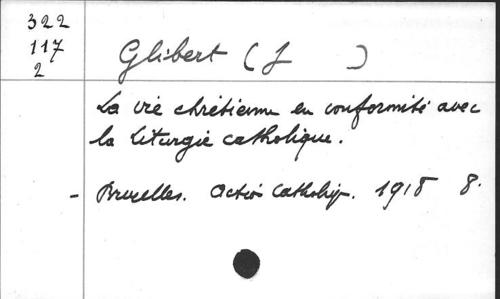 322
117
2
Glibert (J )
La vie chrétienne en conformité avec
la Liturgie catholique.
- Bruxelles. Action Catholiq. 1918 8.